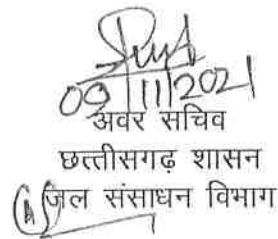 09/11/2021
अवर सचिव
छत्तीसगढ़ शासन
जल संसाधन विभाग